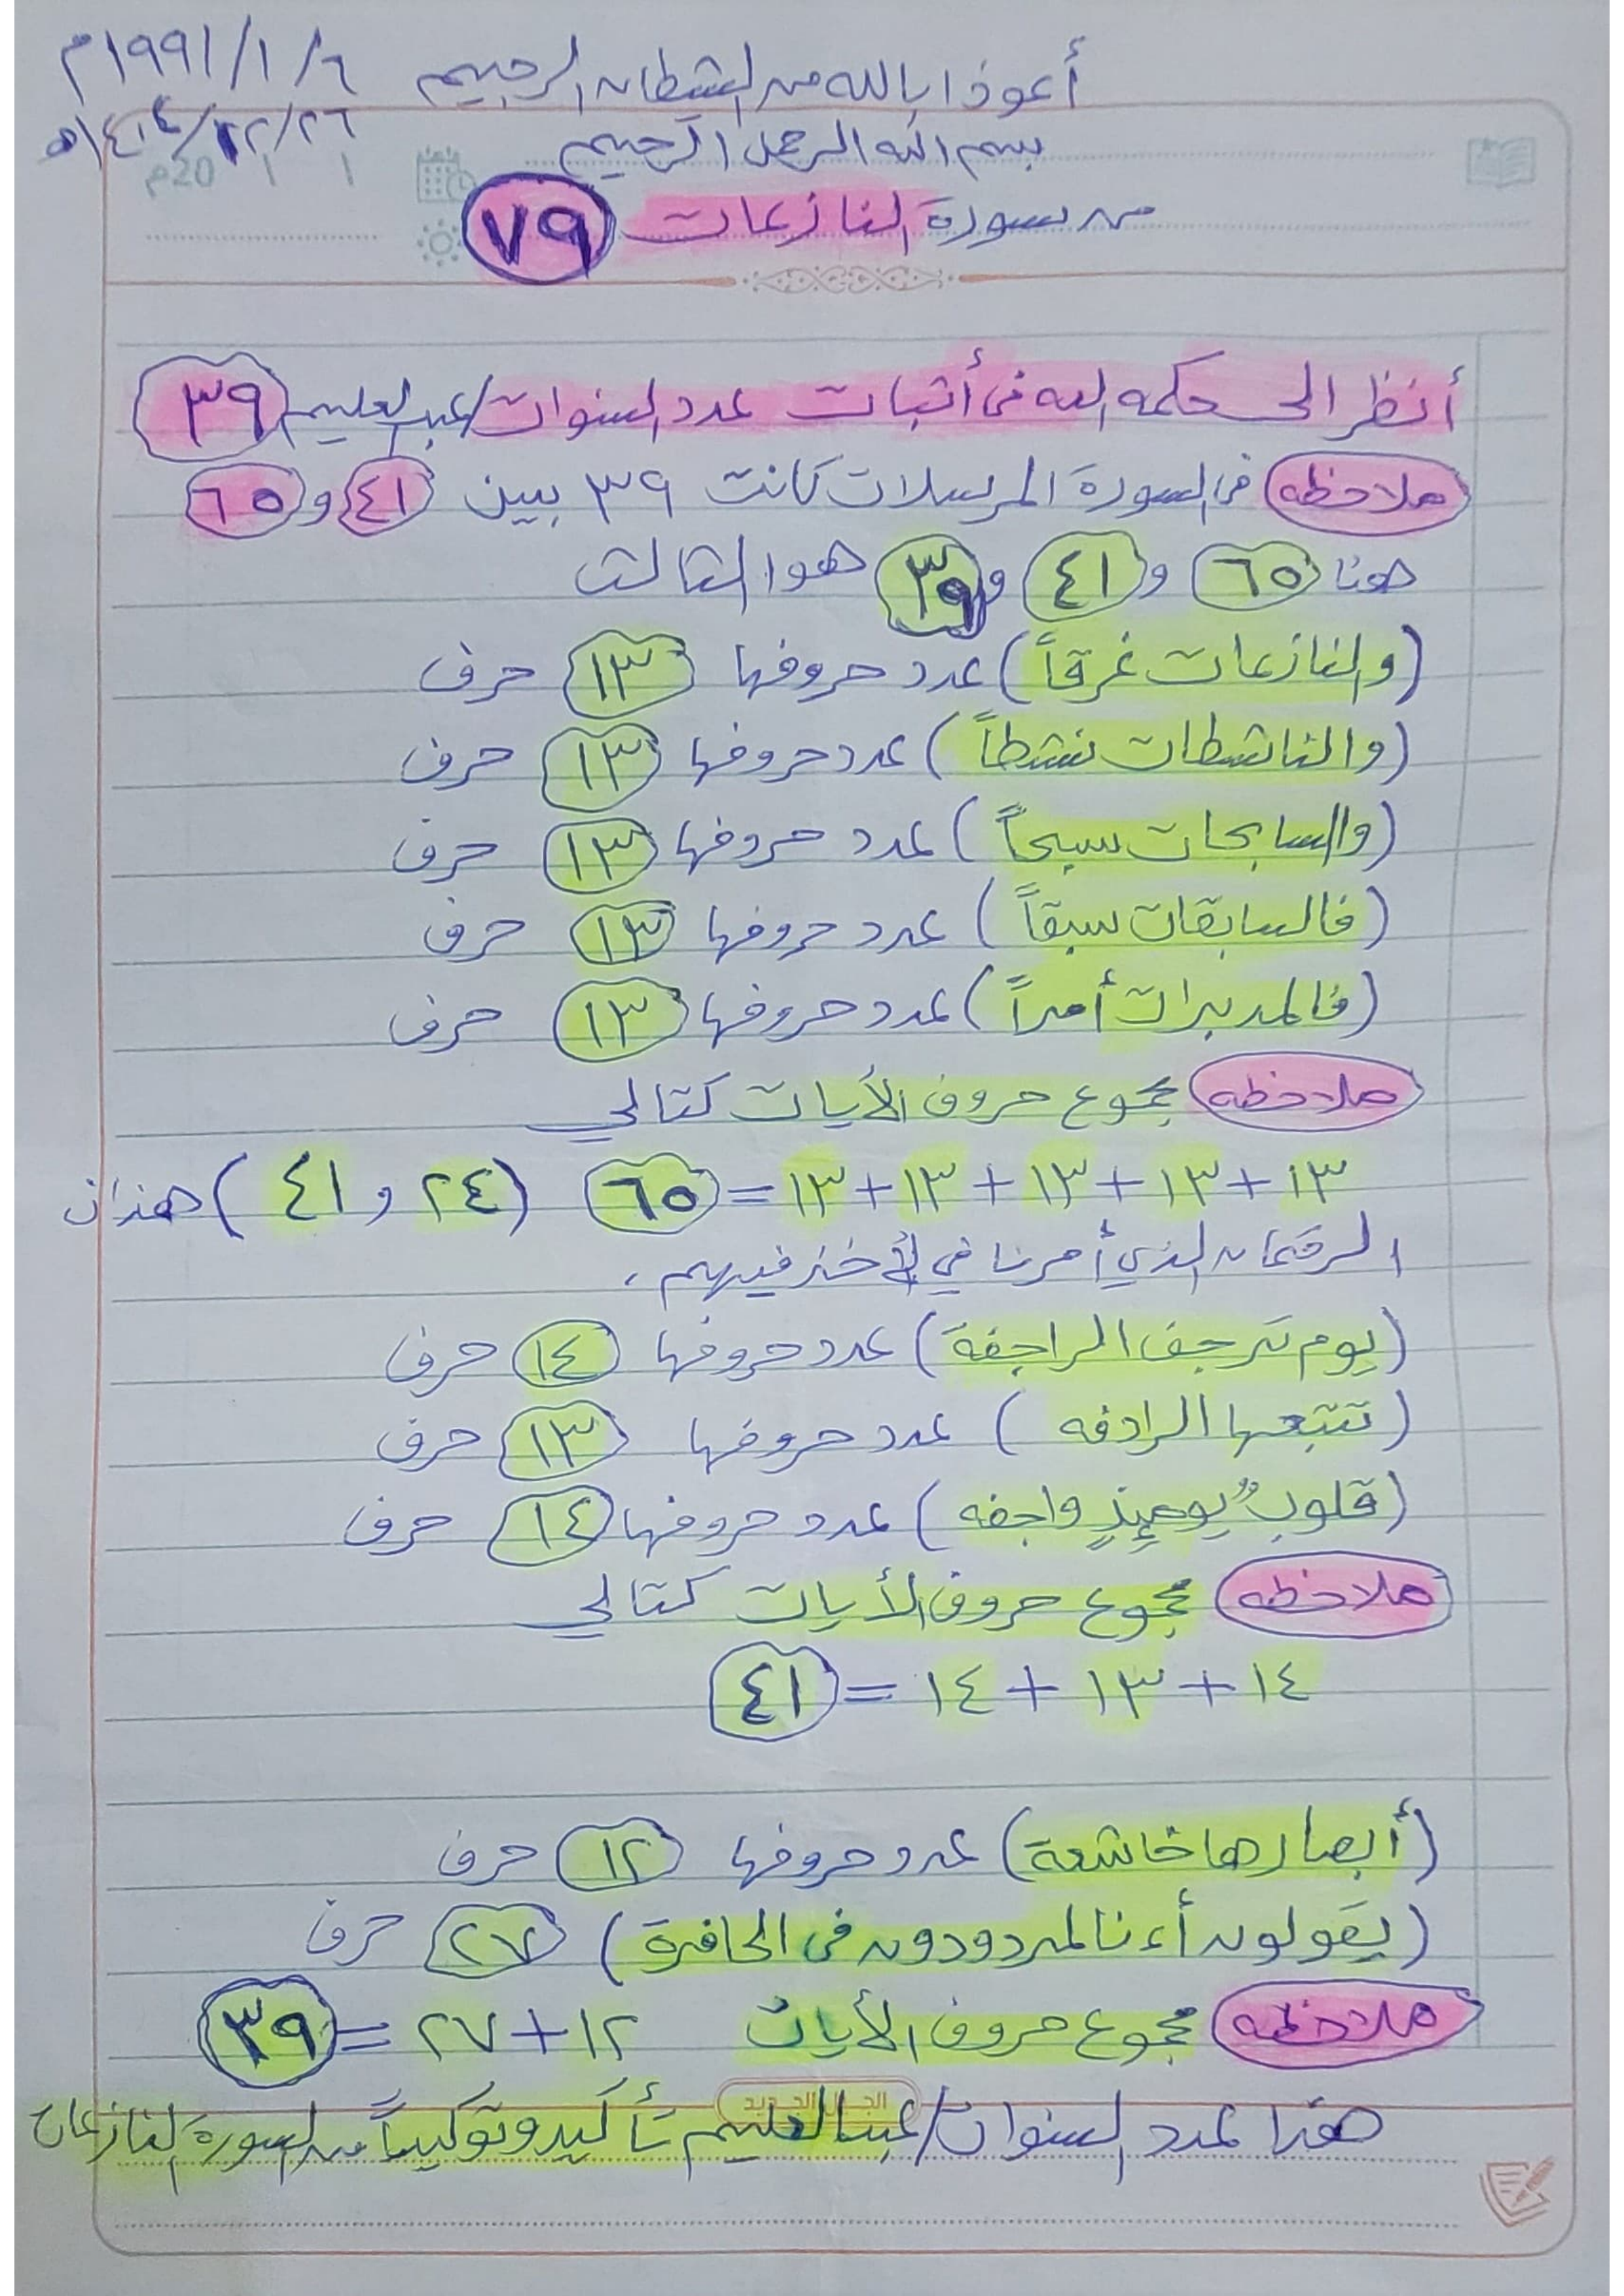 ١٩٩١/١/٦م
أعوذا بالله من الشطان الرجيم
٢٦/١٢/١٤١٤ه
بسم الله الرحمن الرحيم
١ ١ 20م
من سورة النازعات ٧٩
أنظر الى حكمه الله في أثبات عدد السنوات/عبدالعليم ٣٩
ملاحظه في السورة المرسلات كانت ٣٩ بين ٤١ و ٦٥
هونا ٦٥ و ٤١ و ٣٩ هوا الثالث
(والنازعات غرقاً) عدد حروفها ١٣ حرف
(والناشطات نشطاً) عدد حروفها ١٣ حرف
(والسابحات سبحاً) عدد حروفها ١٣ حرف
(فالسابقات سبقاً) عدد حروفها ١٣ حرف
(فالمدبرات أمراً) عدد حروفها ١٣ حرف
ملاحظه مجموع حروف الأيات كتالي
١٣+١٣+١٣+١٣+١٣=٦٥ (٢٤ و ٤١) هذان
الرقمان الذي أمرنا في الأخذ فيهم،
(يوم ترجف الراجفة) عدد حروفها ١٤ حرف
(تتبعها الرادفه) عدد حروفها ١٣ حرف
(قلوبٌ يومئِذٍ واجفه) عدد حروفها ١٤ حرف
ملاحظه مجموع حروف الأيات كتالي
١٤+١٣+١٤=٤١
(أبصارها خاشعة) عدد حروفها ١٢ حرف
(يقولون أءنا لمردودون في الحافرة) ٢٧ حرف
ملاحظه مجموع حروف الأيات ١٢+٢٧=٣٩
هذا عدد السنوات/عبدالعليم تأكيد وتوكيداً من السورة النازعات